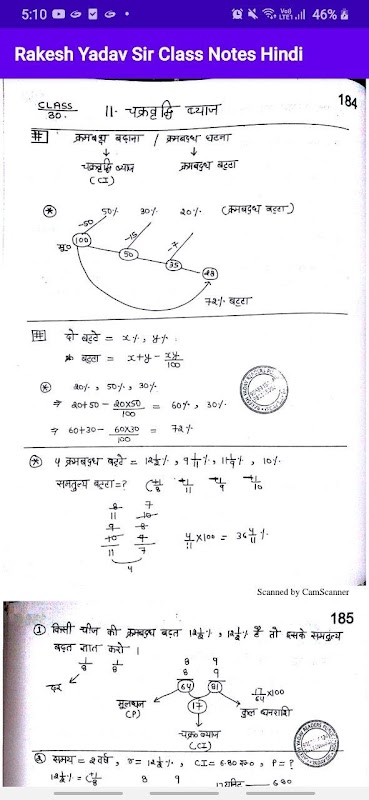 5:10
46%
Rakesh Yadav Sir Class Notes Hindi
CLASS 30.
11. चक्रवृद्धि ब्याज
184
# क्रमबद्ध बढ़ाना / क्रमबद्ध घटना
↓ ↓
चक्रवृद्धि ब्याज क्रमबद्ध बट्टा
(CI)
50% 30% 20% (क्रमबद्ध बट्टा)
-50 -15 -7
मू० 100 50 35 28
72% बट्टा
# दो बट्टे = x%, y%
बट्टा = x+y - xy/100
20%, 50%, 30%
⇒ 20+50 - 20×50/100 = 60%, 30%
⇒ 60+30 - 60×30/100 = 72%
4 क्रमबद्ध बट्टे = 12 1/2%, 9 1/11%, 11 1/9%, 10%
समतुल्य बट्टा=?
8 7
11 10
9 8
10 9
11 7
4
4/11 ×100 = 36 4/11 %
Scanned by CamScanner
185
① किसी चीज की क्रमबद्ध बढ़त 12 1/2%, 12 1/2% है तो इसके समतुल्य
बढ़त ज्ञात करो।
1/8 1/8 8 9
दर 8 9
64 81
17/64 ×100
मूलधन 17 कुल धनराशि
(P)
चक्र ब्याज
(CI)
② समय = 2 वर्ष, r = 12 1/2%, CI = 680 रु०, P = ?
12 1/2% = +1/8 8 9 17 यूनिट — 680